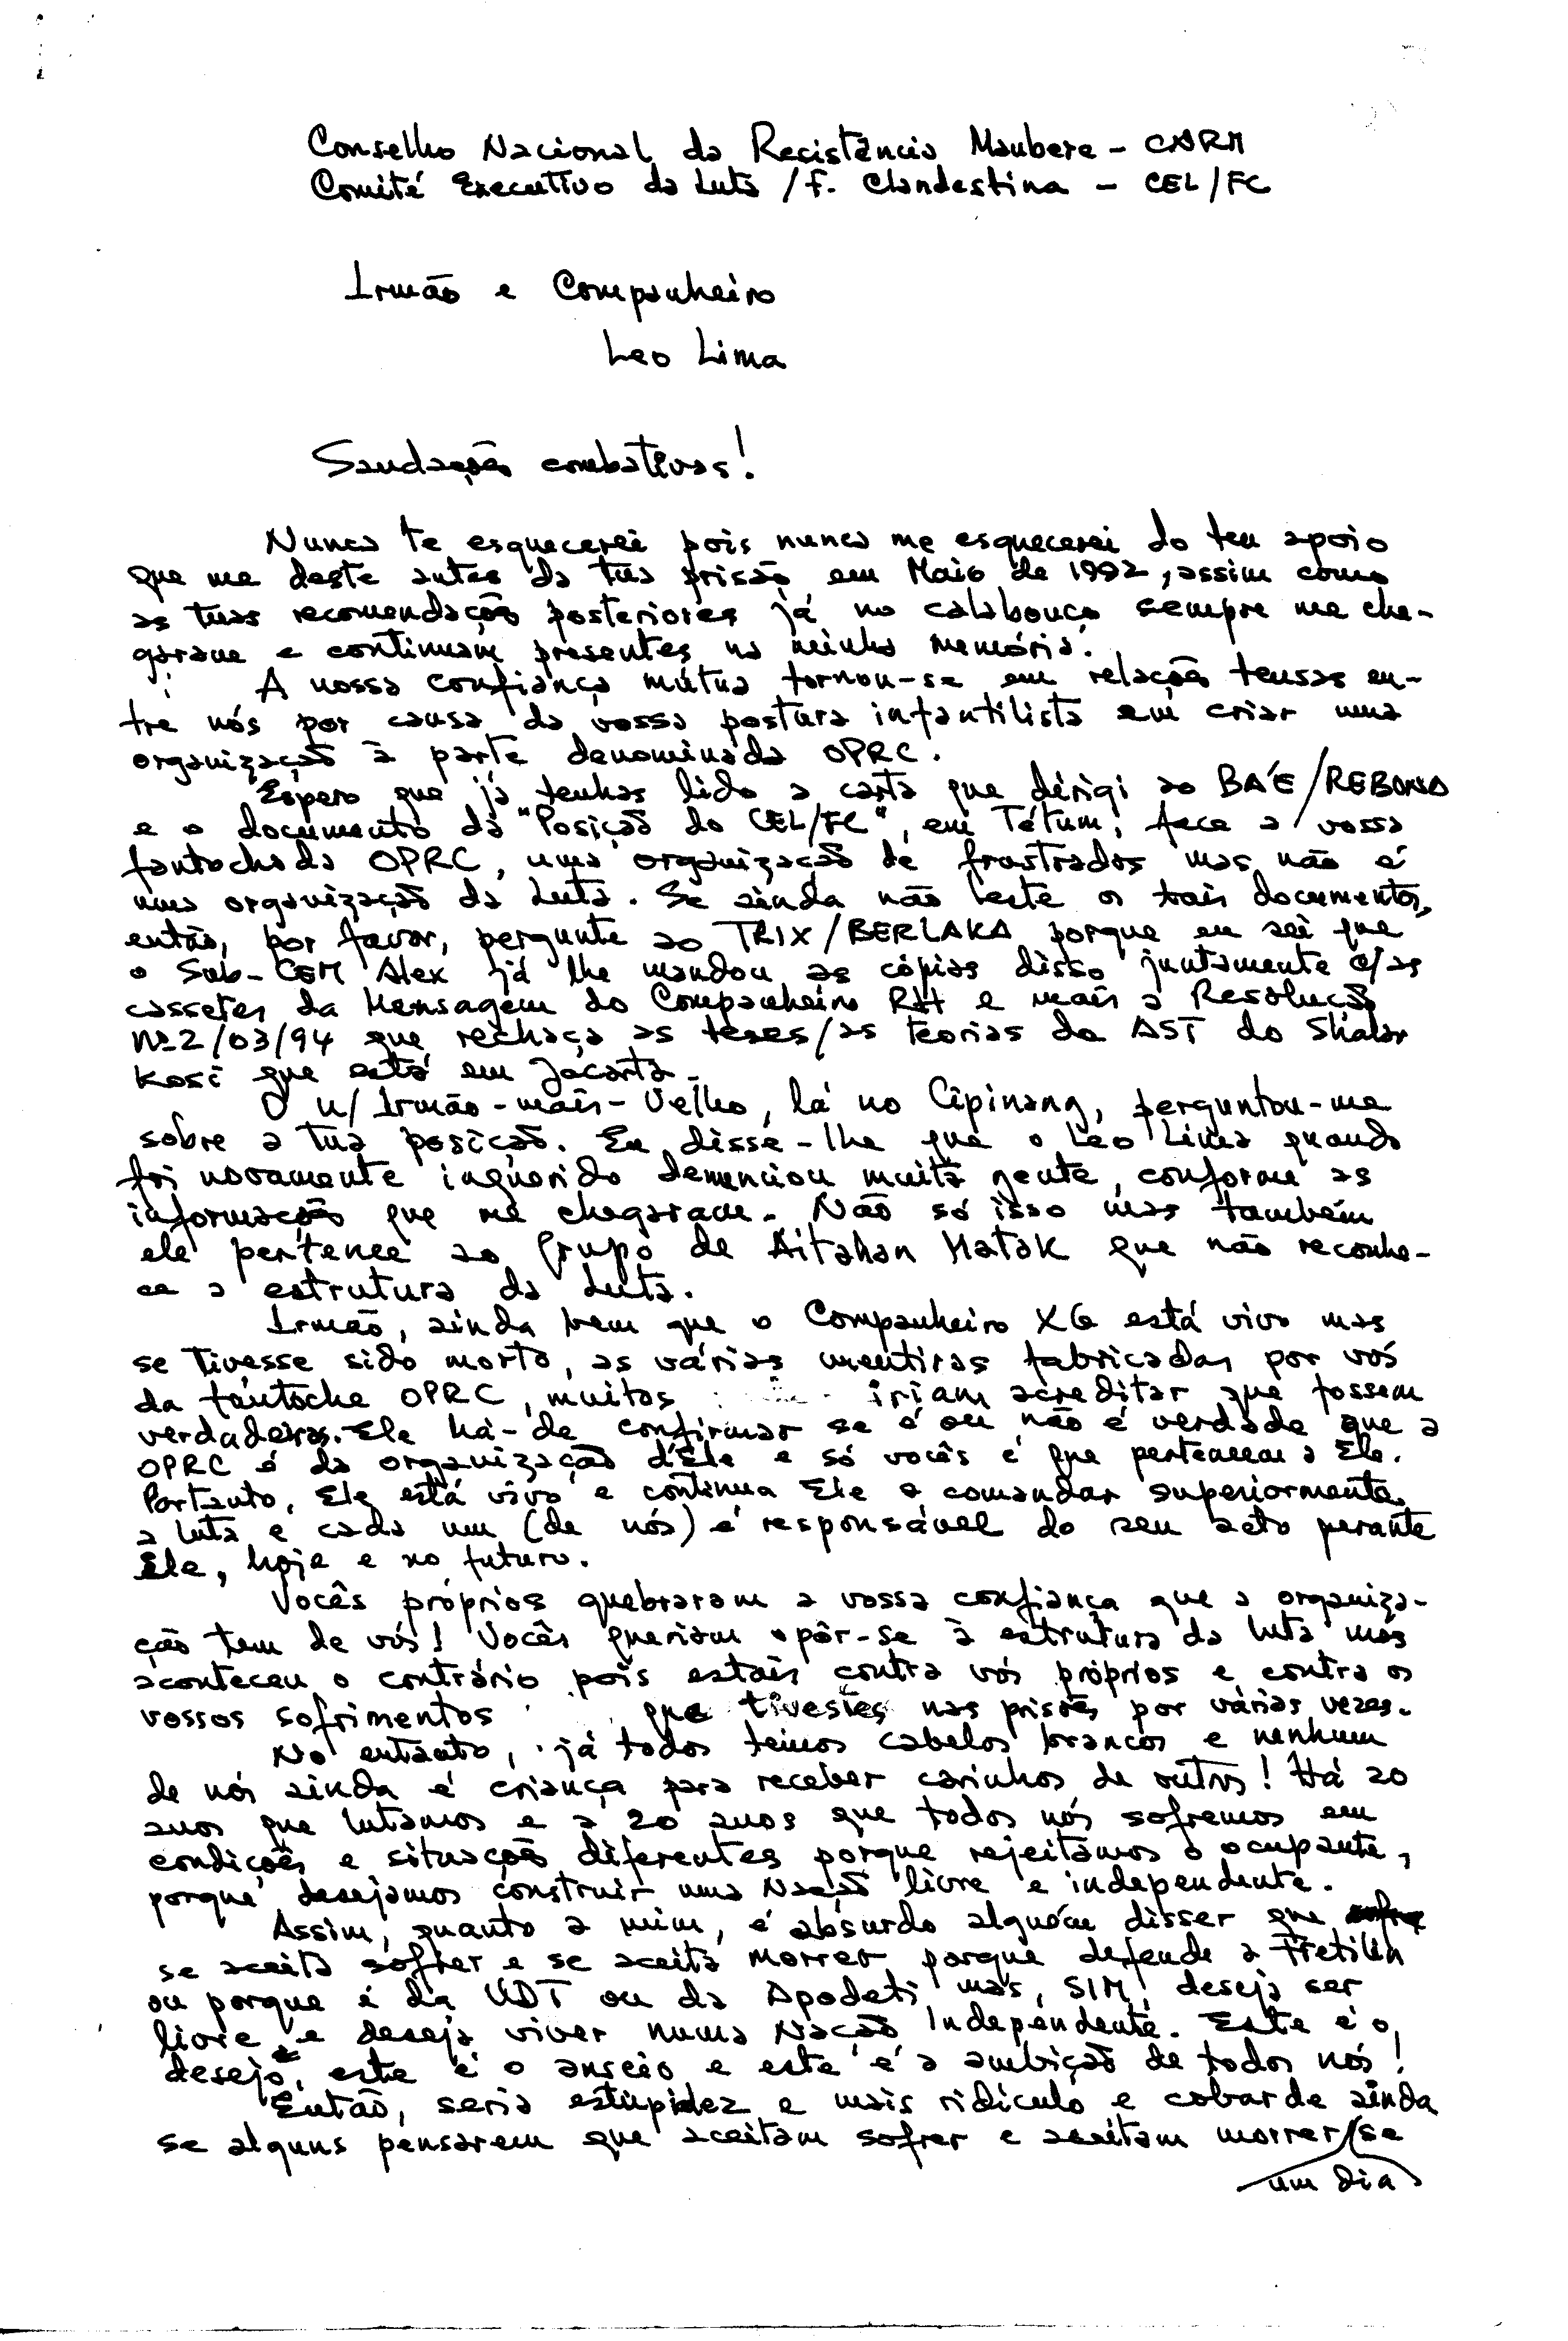 Conselho Nacional da Resistência Maubere - CNRM
Comité Executivo da Luta /F. Clandestina - CEL/FC
Irmão e Companheiro
Leo Lima
Saudações combativas!
Nunca te esquecerei pois nunca me esquecerei do teu apoio
que me deste antes da tua prisão em Maio de 1992, assim como
as tuas recomendações posteriores já no calabouço sempre me che-
garam e continuam presentes na minha memória.
A nossa confiança mútua tornou-se em relações tensas en-
tre nós por causa da vossa postura infantilista em criar uma
organização à parte denominada OPRC.
Espero que já tenhas lido a carta que dirigi ao BA'E/REBONA
e o documento da "Posição do CEL/FC", em Tétum, face a vossa
fantochada OPRC, uma organização de frustrados mas não é
uma organização da Luta. Se ainda não leste os tais documentos,
então, por favor, pergunte ao TRIX/BERLAKA porque eu sei que
o Sub-CEM Alex já lhe mandou as cópias disso juntamente c/as
cassetes da Mensagem do Companheiro RH e mais a Resolução
Nº2/03/94 que rechaça as teses/as teorias da AST do Shalar
Kosi que está em Jacarta.
O n/ Irmão-mais-Velho, lá no Cipinang, perguntou-me
sobre a tua posição. Eu disse-lhe que o Leo Lima quando
foi novamente inquerido denunciou muita gente, conforme as
informações que me chegaram. Não só isso mas também
ele pertence ao Grupo de Aitahan Matak que não reconhe-
ce a estrutura da Luta.
Irmão, ainda bem que o Companheiro XG está vivo mas
se tivesse sido morto, as várias mentiras fabricadas por vós
da fantoche OPRC, muitos iriam acreditar que fossem
verdadeiras. Ele há-de confirmar se é ou não é verdade que a
OPRC é da organização d'Ele e só vocês é que pertencem a Ele.
Portanto, Ele está vivo e continua Ele a comandar superiormente
a luta e cada um (de nós) é responsável do seu acto perante
Ele, hoje e no futuro.
Vocês próprios quebraram a vossa confiança que a organiza-
ção tem de vós! Vocês queriam opôr-se à estrutura da luta mas
aconteceu o contrário pois estais contra vós próprios e contra os
vossos sofrimentos que tivestes nas prisões por várias vezes.
No entanto, já todos temos cabelos brancos e nenhum
de nós ainda é criança para receber carinhos de outros! Há 20
anos que lutamos e a 20 anos que todos nós sofremos em
condições e situações diferentes porque rejeitámos o ocupante,
porque desejamos construir uma Nação livre e independente.
Assim, quanto a mim, é absurdo alguém disser que
se aceita sofrer e se aceita morrer porque defende a Fretilin
ou porque é da UDT ou da Apodeti mas, SIM! deseja ser
livre e deseja viver numa Nação Independente. Este é o
desejo, este é o anseio e este é a ambição de todos nós!
Então, seria estupidez e mais ridículo e cobarde ainda
se alguns pensarem que aceitam sofrer e aceitam morrer/se
um dia